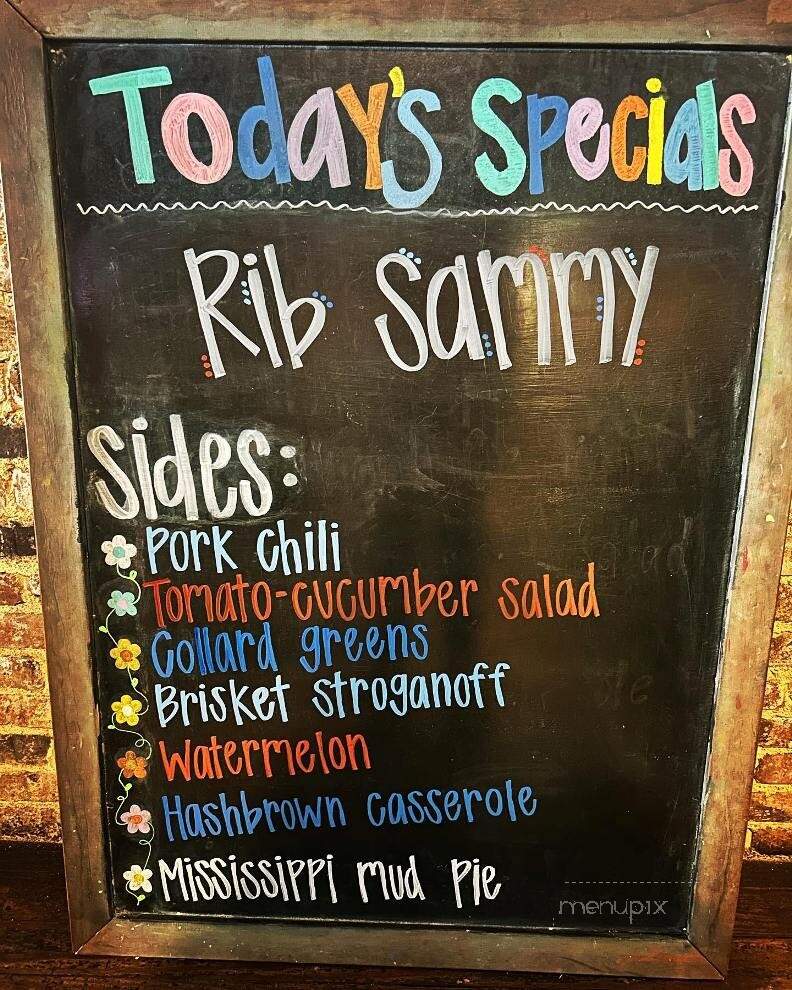 Today's Specials
Rib Sammy
Sides:
Pork Chili
Tomato-cucumber salad
Collard greens
Brisket stroganoff
Watermelon
Hashbrown casserole
Mississippi mud pie
menupix